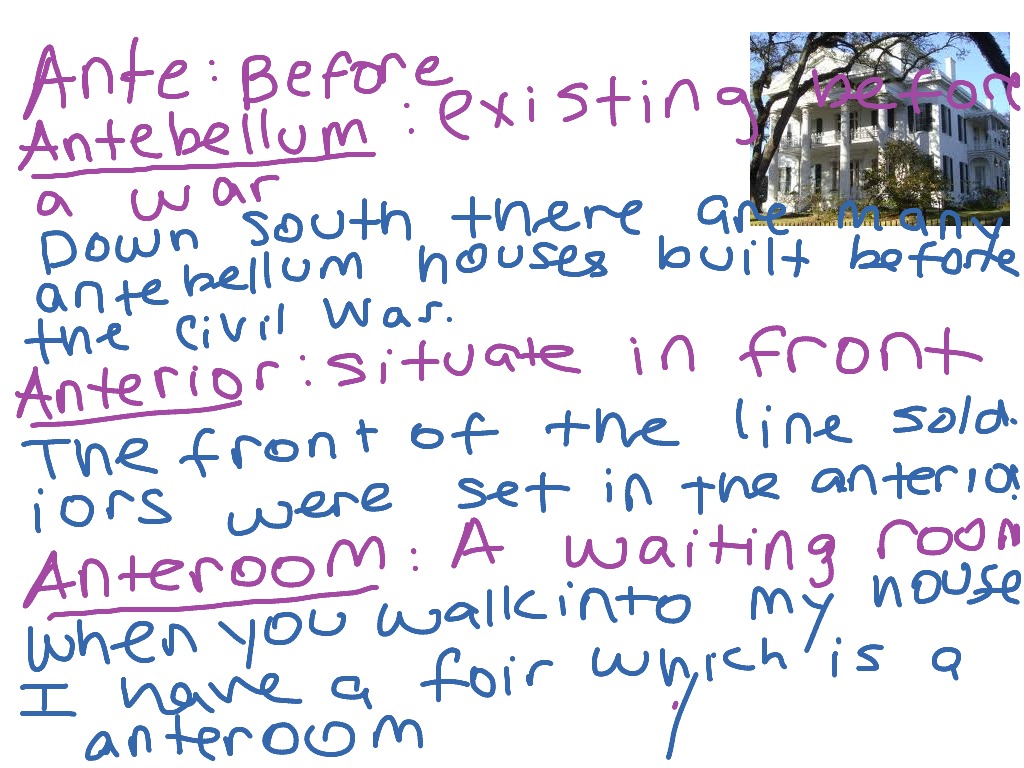 Ante: Before
Antebellum: existing before
a war
Down south there are many
antebellum houses built before
the civil war.
Anterior: situate in front
The front of the line sold.
iors were set in the anterior
Anteroom: A waiting room
When you walk into my house
I have a foir which is a
anteroom